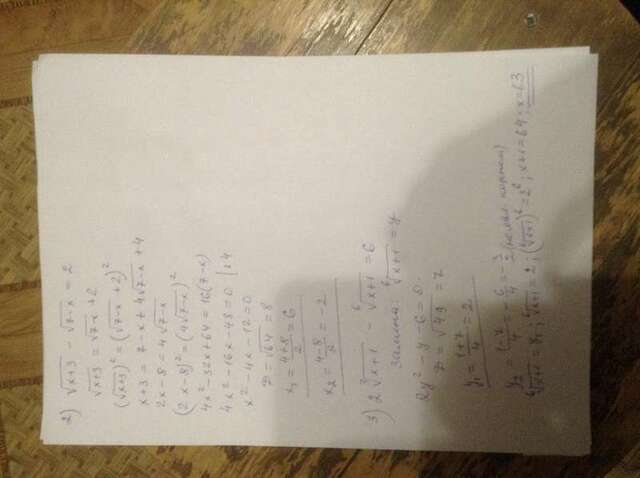 2) √(x+3) - √(7-x) = 2
√(x+3) = √(7-x) + 2
(√(x+3))² = (√(7-x) + 2)²
x+3 = 7-x + 4√(7-x) + 4
2x-8 = 4√(7-x)
(2x-8)² = (4√(7-x))²
4x² - 32x + 64 = 16(7-x)
4x² - 16x - 48 = 0 |:4
x² - 4x - 12 = 0
D = √64 = 8
x₁ = (4+8)/2 = 6
x₂ = (4-8)/2 = -2
3) 2∛(x+1) - ⁶√(x+1) = 6
замена: ⁶√(x+1) = y
2y² - y - 6 = 0
D = √49 = 7
y₁ = (1+7)/4 = 2
y₂ = (1-7)/4 = -6/4 = -3/2 (не явл. корнем)
⁶√(x+1) = y₁; ⁶√(x+1) = 2; (⁶√(x+1))⁶ = 2⁶; x+1 = 64; x = 63